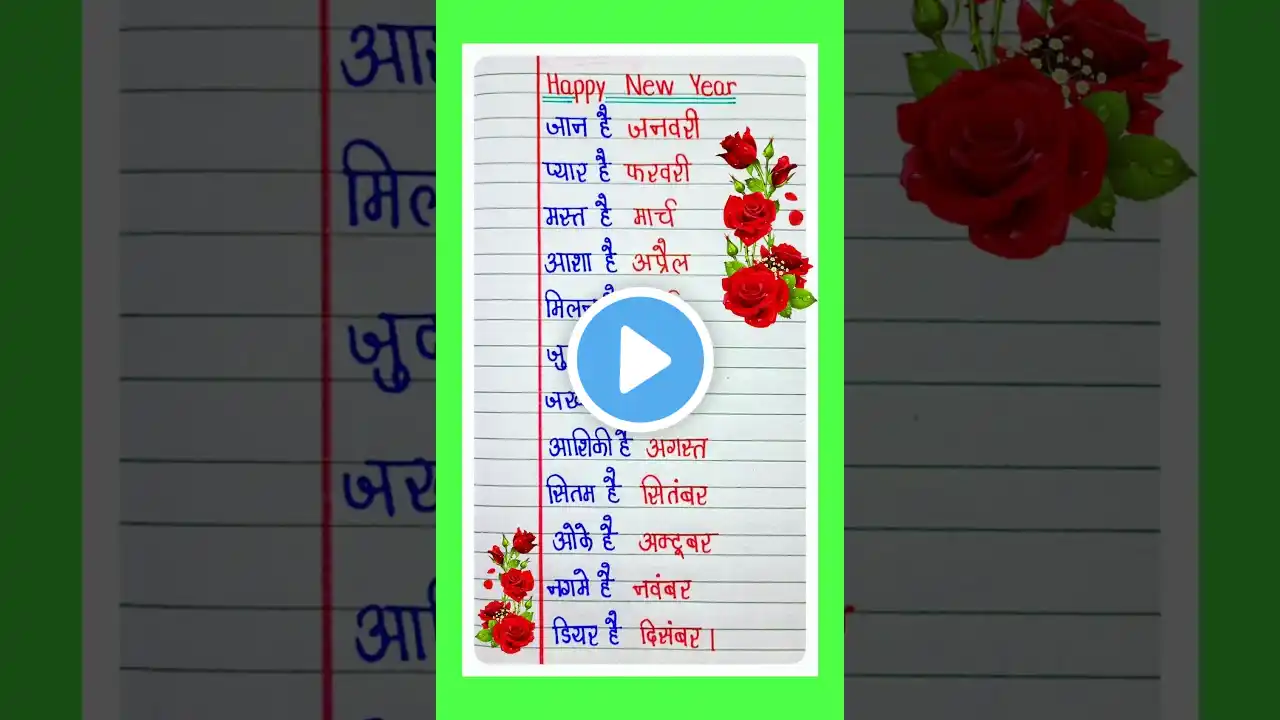 Happy New Year
जान है जनवरी
प्यार है फरवरी
मस्त है मार्च
आशा है अप्रैल
मिलन
जु
जख
आशिकी है अगस्त
सितम है सितंबर
ओके है अक्टूबर
नगमे है नवंबर
डियर है दिसंबर।